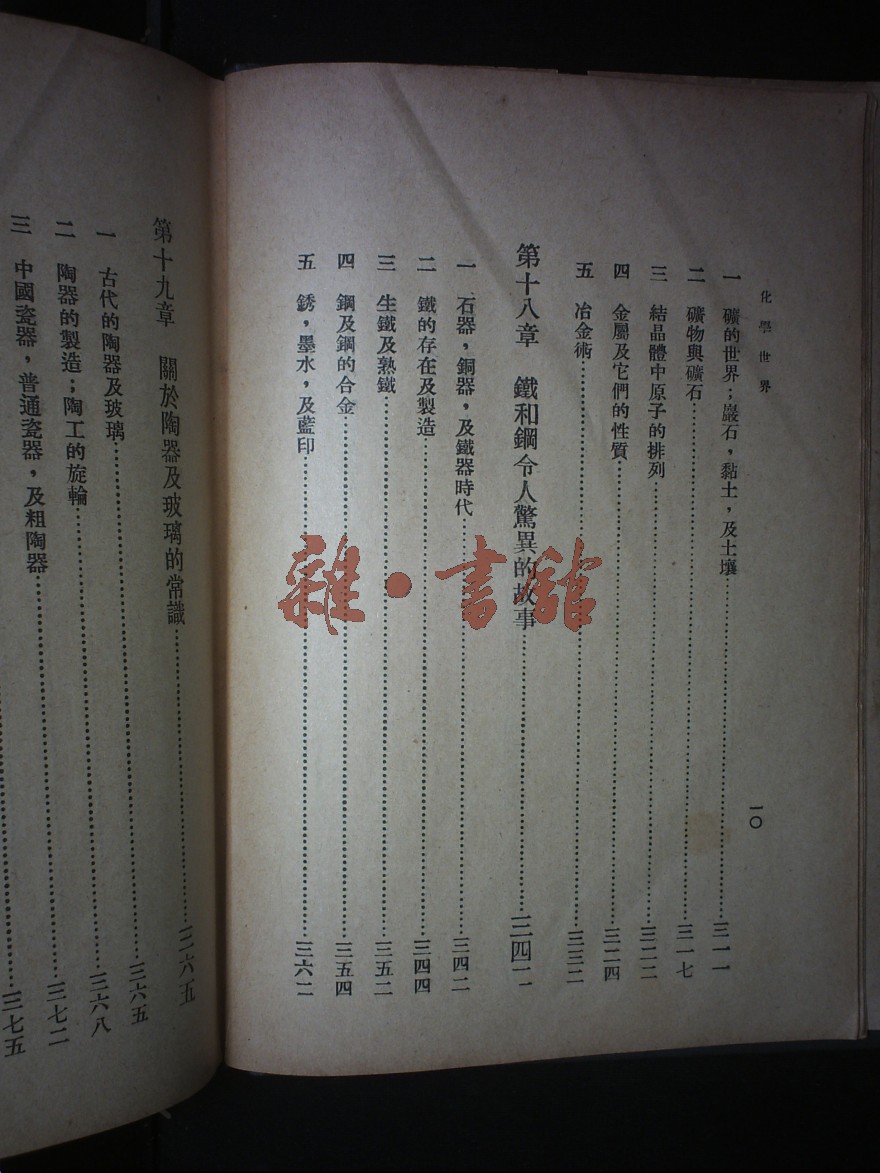 化學世界
一〇
一 礦的世界；巖石，黏土，及土壤……三一一
二 礦物與礦石……三一七
三 結晶體中原子的排列……三二二
四 金屬及它們的性質……三二四
五 冶金術……三三二
第十八章 鐵和鋼令人驚異的故事……三四二
一 石器，銅器，及鐵器時代……三四二
二 鐵的存在及製造……三四四
三 生鐵及熟鐵……三五二
四 鋼及鋼的合金……三五四
五 銹，墨水，及藍印……三六二
第十九章 關於陶器及玻璃的常識……三六五
一 古代的陶器及玻璃……三六五
二 陶器的製造；陶工的旋輪……三六八
三 中國瓷器，普通瓷器，及粗陶器……三七二
三七五
雜·書館